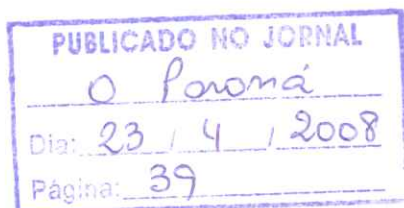 PUBLICADO NO JORNAL
O Paraná
Dia: 23 / 4 / 2008
Página: 39